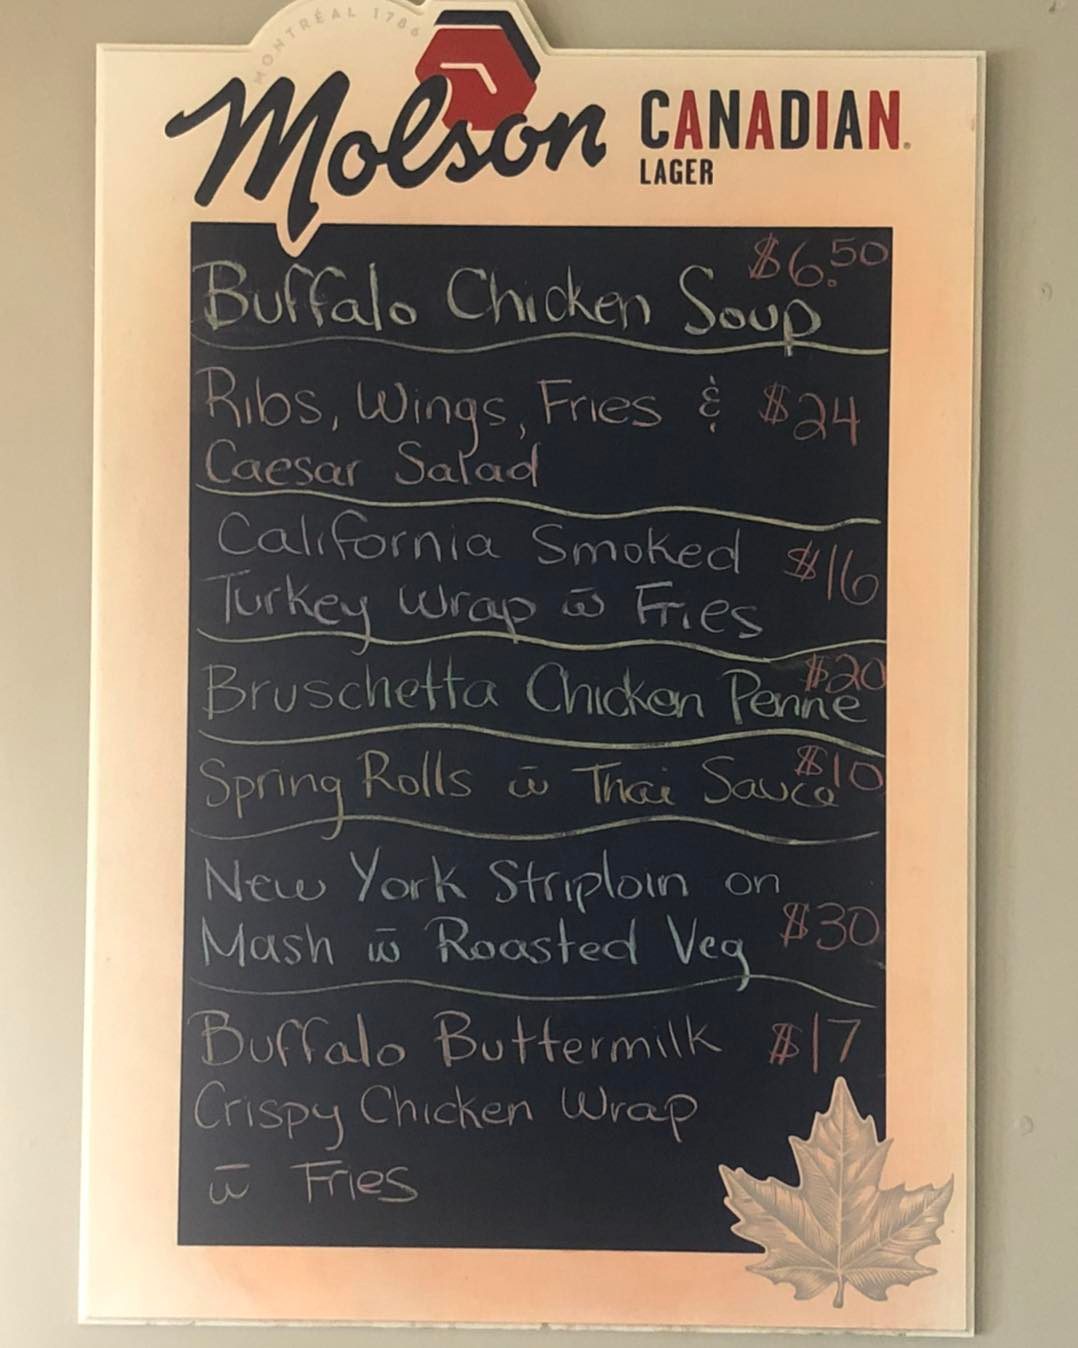 MONTRÉAL 1786
Molson CANADIAN.
LAGER
$6.50
Buffalo Chicken Soup
Ribs, Wings, Fries & $24
Caesar Salad
California Smoked $16
Turkey Wrap w̅ Fries
$20
Bruschetta Chicken Penne
$10
Spring Rolls w̅ Thai Sauce
New York Striploin on
Mash w̅ Roasted Veg $30
Buffalo Buttermilk $17
Crispy Chicken Wrap
w̅ Fries